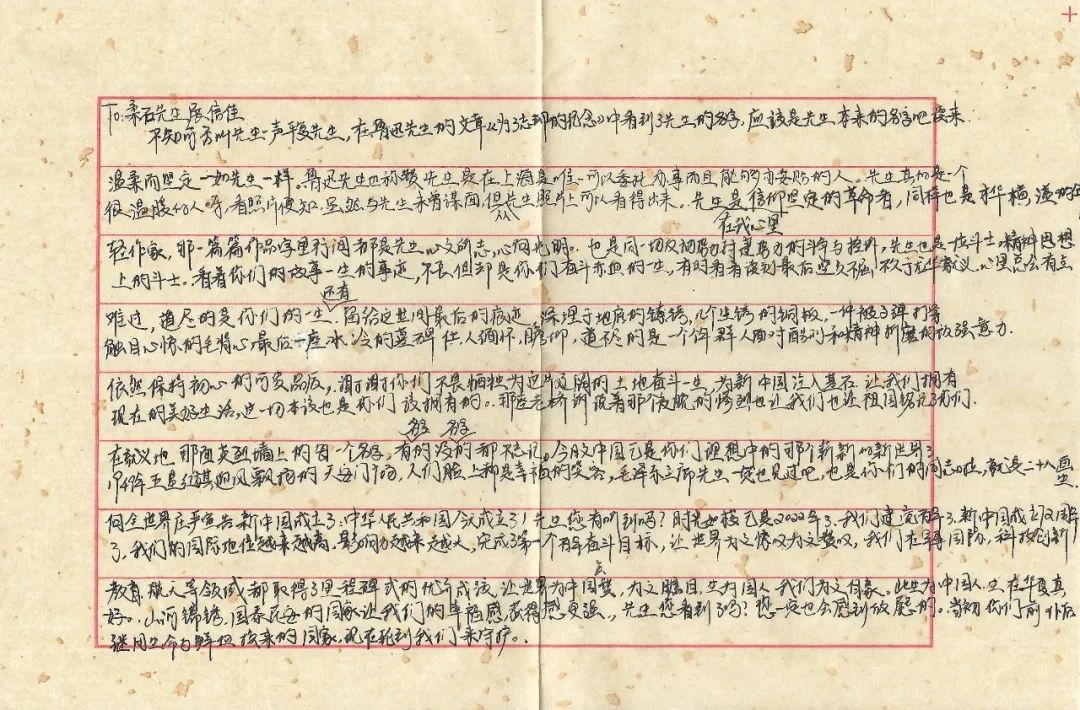 To:柔石先生展信佳
不知可否叫先生一声平复先生,在鲁迅先生的文章《为了忘却的纪念》中看到了先生的名字,应该是先生本来的名字吧读来
温柔而坚定一如先生一样。鲁迅先生也称赞先生是在上海是唯一可以委托办事而且能够办妥贴的人。先生真的是一个
很温暖的人呀,看照片便知。虽然与先生未曾谋面,但从先生照片上可以看得出来。在我心里先生是信仰坚定的革命者,同样也是才华横溢的年
轻作家,那一篇篇作品字里行间都是先生心之所志,心向光明。也是同一切反动势力封建势力的斗争与控诉,先生也是一位斗士,精神思想
上的斗士。看着你们的故事一生的事迹,不长但却是你们奋斗流血的一生,有时看着读到最后坚贞不屈,不久于龙华就义,心里总会有点
难过,道尽的是你们的一生,还有留给这世间最后的痕迹,深埋于地底的镣铐,几个生锈的铜板,一件被子弹打穿
触目心惊的毛背心最后一座冰冷的墓碑任人缅怀,瞻仰,道不尽的是一个群人面对酷刑和精神折磨的顽强意力
依然保持初心的可贵品质,谢谢你们不畏牺牲为这片辽阔的土地奋斗一生,为新中国注入基石让我们拥有
现在的美好生活,这一切本该也是你们该拥有的。那座龙桥诉说着那个夜晚的惨烈也让我们也让祖国铭记了你们.
在就义地那面英烈墙上的每一个名字,有名字的没名字的都不忘记。今朝中国已是你们理想中的那个崭新的新世界了
一条五星红旗迎风飘扬的天安门广场,人们脸上都是幸福的笑容,毛泽东主席先生一定也见过吧,也是你们的同志啦,就是二十八画生
向全世界庄严宣告新中国成立了.中华人民共和国今天成立了!先生您有听到吗?时光如梭已是2022年了,我们建党百年了,新中国成立70周年
了,我们的国际地位越来越高,影响力越来越大,完成了第一个百年奋斗目标,让世界为之惊叹为之赞叹,我们在军事国防,科技创新,
教育,航天等领域都取得了里程碑式的优异成绩,让世界为中国点赞,为之瞩目,生为国人,我们为之自豪。此生为中国人,生在华夏真
好。山河锦绣,国泰民安的国家让我们的幸福感获得感更强,先生您看到了吗?您一定也会感到欣慰的。当初你们前仆后
继用生命与鲜血换来的国家,现在轮到我们来守护。